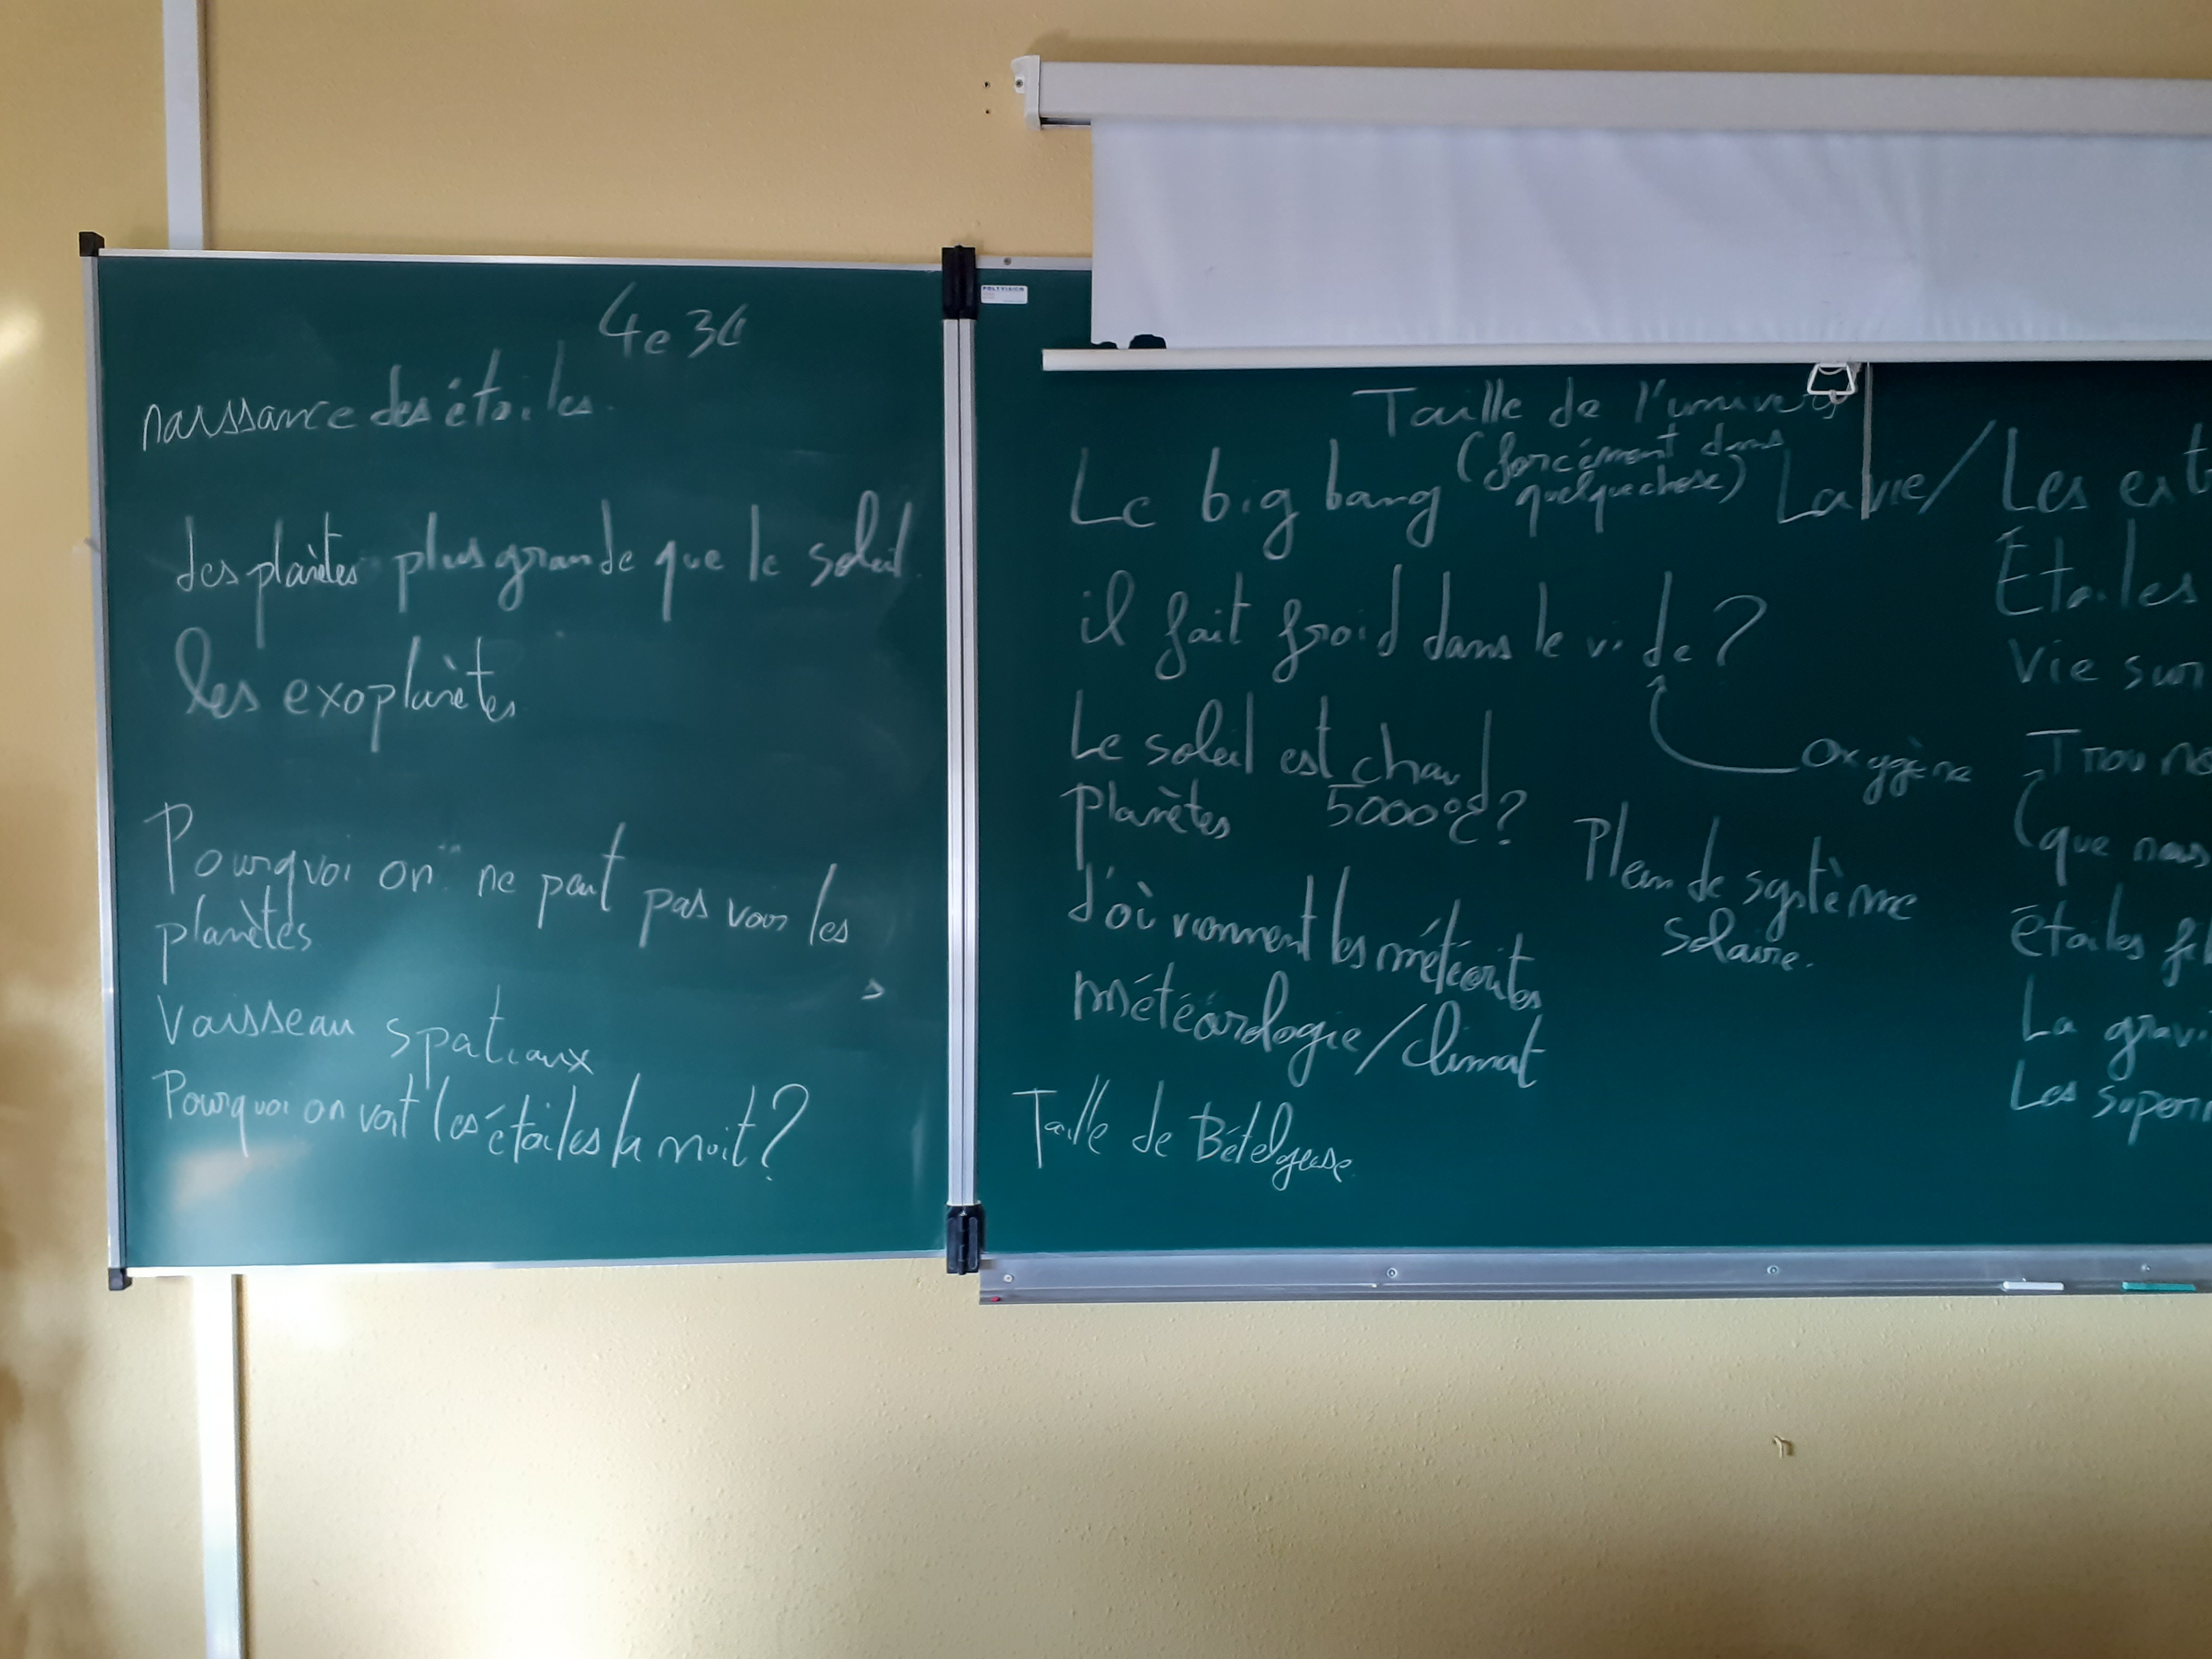 POLYVISION
naissance des étoiles.
des planètes plus grande que le soleil.
les exoplanètes
Pourquoi on ne peut pas voir les
planètes
Vaisseau spatiaux
Pourquoi on voit les étoiles la nuit?
Taille de l'univers
(forcément dans
quelque chose)
Le big bang
La vie/
il fait froid dans le vide?
Oxygène
Le soleil est chaud
Planètes 5000°C?
Plein de système
solaire.
d'où viennent les météorites
météorologie/climat
Taille de Bételgeuse.
Les ext
Étoiles
Vie sur
Trou no
(que nous
étoiles fil
La gravi
Les supern